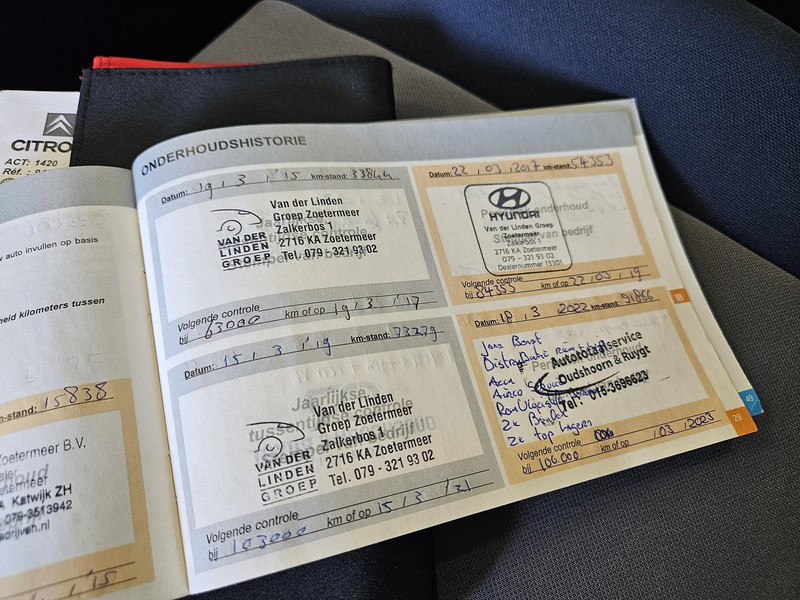 CITRO
ACT: 1420
Réf. :
auto invullen op basis
heid kilometers tussen
n-stand: 15838
Zoetermeer B.V.
Katwijk ZH
079-3513942
ONDERHOUDSHISTORIE
Datum: 19 / 3 / '15 km-stand: 33844
Van der Linden
Groep Zoetermeer
Zalkerbos 1
2716 KA Zoetermeer
Tel. 079 - 321 93 02
VAN DER
LINDEN
GROEP
Volgende controle
bij 63000 km of op 19 / 3 / '17
Datum: 15 / 3 / '19 km-stand: 73279
Jaarlijkse
tussentijdse controle
Van der Linden
Groep Zoetermeer
Zalkerbos 1
2716 KA Zoetermeer
Tel. 079 - 321 93 02
VAN DER
LINDEN
GROEP
Volgende controle
bij 103000 km of op 15 / 3 / '21
Datum: 22 / 03 / 2017 km-stand: 54353
HYUNDAI
Van der Linden Groep
Zoetermeer
Zalkerbos 1
2716 KA Zoetermeer
079 - 321 93 02
Dealernummer 13301
Volgende controle
bij 84353 km of op 22 / 03 / 19
Datum: 18 / 3 / 2022 km-stand: 91866
Distributie
Accu
Airco
2x Banden
2x top lagers
Autototaalservice
Oudshoorn & Ruygt
Tel.: 015-3696623
Volgende controle
bij 106.000 km of op / 03 / 2023
29
49